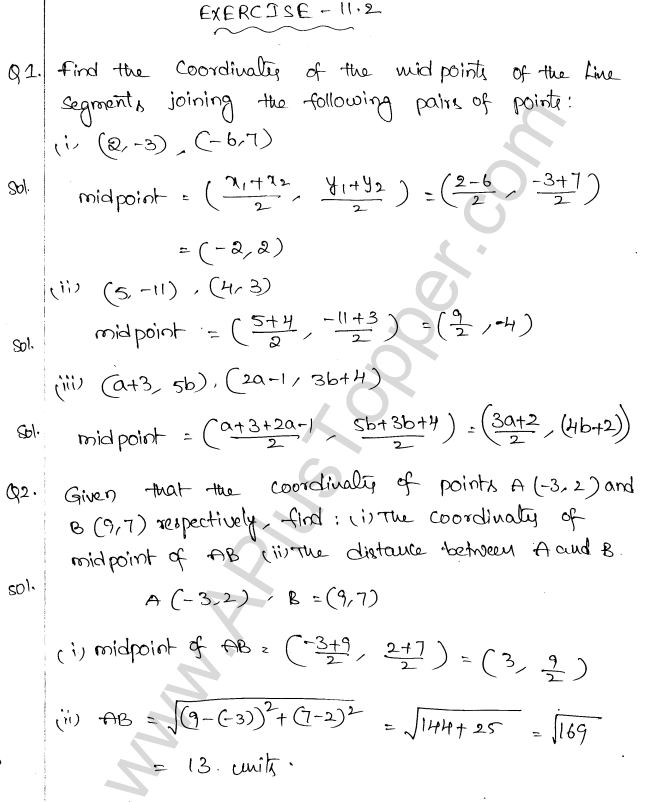 EXERCISE - 11.2
Q1. Find the Coordinates of the midpoints of the Line
segments joining the following pairs of points:
(i) (2,-3), (-6,7)
Sol. midpoint = (x₁+x₂/2, y₁+y₂/2) = (2-6/2, -3+7/2)
= (-2, 2)
(ii) (5,-11), (4,3)
Sol. midpoint = (5+4/2, -11+3/2) = (9/2, -4)
(iii) (a+3, 5b), (2a-1, 3b+4)
Sol. midpoint = (a+3+2a-1/2, 5b+3b+4/2) = (3a+2/2, (4b+2))
Q2. Given that the coordinates of points A(-3,2) and
B(9,7) respectively, find: (i) The coordinates of
midpoint of AB (ii) The distance between A and B.
Sol. A(-3,2), B=(9,7)
(i) midpoint of AB = (-3+9/2, 2+7/2) = (3, 9/2)
(ii) AB = √(9-(-3))²+(7-2)² = √144+25 = √169
= 13. units.
www.APlusTopper.com